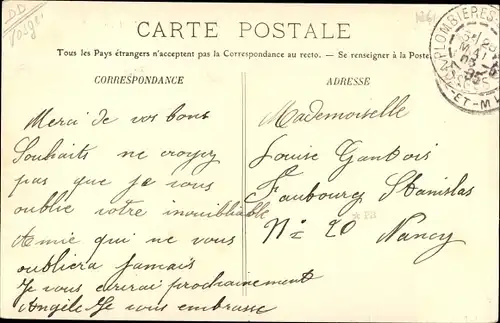 DD
Vosges
CARTE POSTALE
Tous les Pays étrangers n'acceptent pas la Correspondance au recto. — Se renseigner à la Poste.
PLOMBIÈRES
MAI
CORRESPONDANCE
Merci de vos bons
Souhaits ne croyez
pas que je vous
oublie votre inoubliable
Amie qui ne vous
oubliera jamais
Je vous écrirai prochainement
Angèle Je vous embrasse
ADRESSE
Mademoiselle
Louise
Faubourg Stanislas
N= 20 Nancy